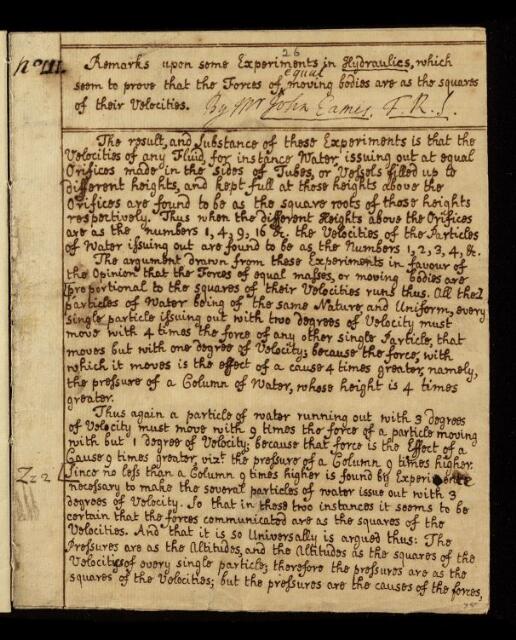 No III.
26
Remarks upon some Experiments in Hydraulics, which
seem to prove that the Forces of equal moving bodies are as the squares
of their Velocities. By Mr John Eames, F.R.S.
The result, and Substance of these Experiments is that the
Velocities of any Fluid, for instance Water, issuing out at equal
Orifices made in the sides of Tubes, or Vessels filled up to
different heights, and kept full at those heights above the
Orifices are found to be as the square roots of those heights
respectively. Thus when the different Heights above the Orifices
are as the numbers 1, 4, 9, 16 &c. the Velocities of the Particles
of Water issuing out are found to be as the Numbers 1, 2, 3, 4, &c.
The argument drawn from these Experiments in favour of
the Opinion that the Forces of equal masses, or moving bodies are
proportional to the squares of their Velocities runs thus. All the
particles of Water being of the same Nature and Uniform, every
single particle issuing out with two degrees of Velocity must
move with 4 times the force of any other single Particle, that
moves but with one degree of Velocity; because the force, with
which it moves is the effect of a cause 4 times greater, namely,
the pressure of a Column of Water, whose height is 4 times
greater.
Thus again a particle of water running out with 3 degrees
of Velocity must move with 9 times the force of a particle moving
with but 1 degree of Velocity; because that force is the Effect of a
Cause 9 times greater, vizt the pressure of a Column 9 times higher.
Zz2 Since no less than a Column 9 times higher is found by
necessary to make the several particles of water issue out with 3
degrees of Velocity. So that in these two instances it seems to be
certain that the forces communicated are as the squares of the
Velocities. And that it is so Universally is argued thus: The
Pressures are as the Altitudes, and the Altitudes as the squares of the
Velocity of every single particle; therefore the pressures are as the
squares of the Velocities; but the pressures are the causes of the forces,